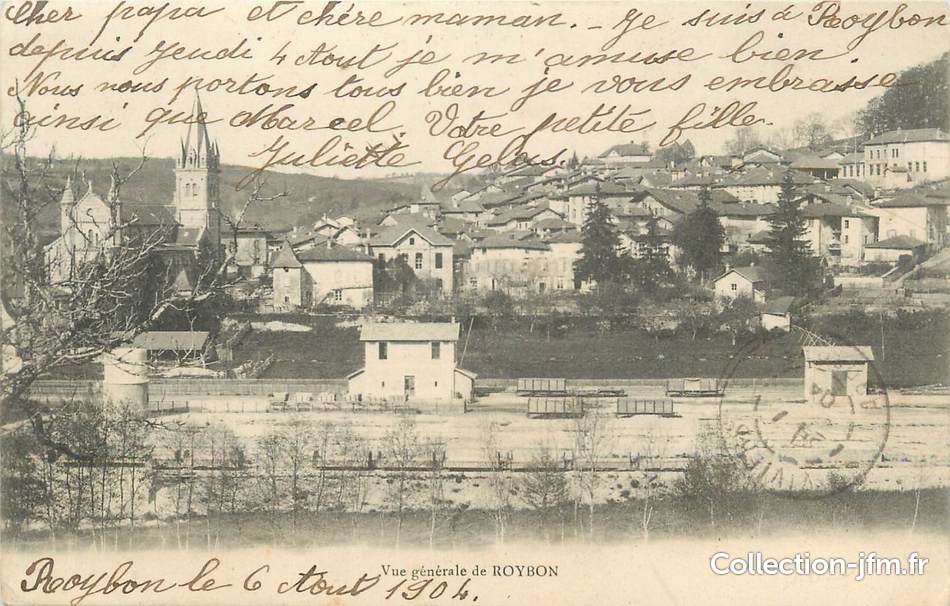 Cher papa et chère maman. - Je suis à Roybon
depuis Jeudi 4 Aout je m'amuse bien.
Nous nous portons tous bien je vous embrasse
ainsi que Marcel. Votre petite fille
Juliette Gelas.
Vue générale de ROYBON
Roybon le 6 Aout 1904.
Collection-jfm.fr